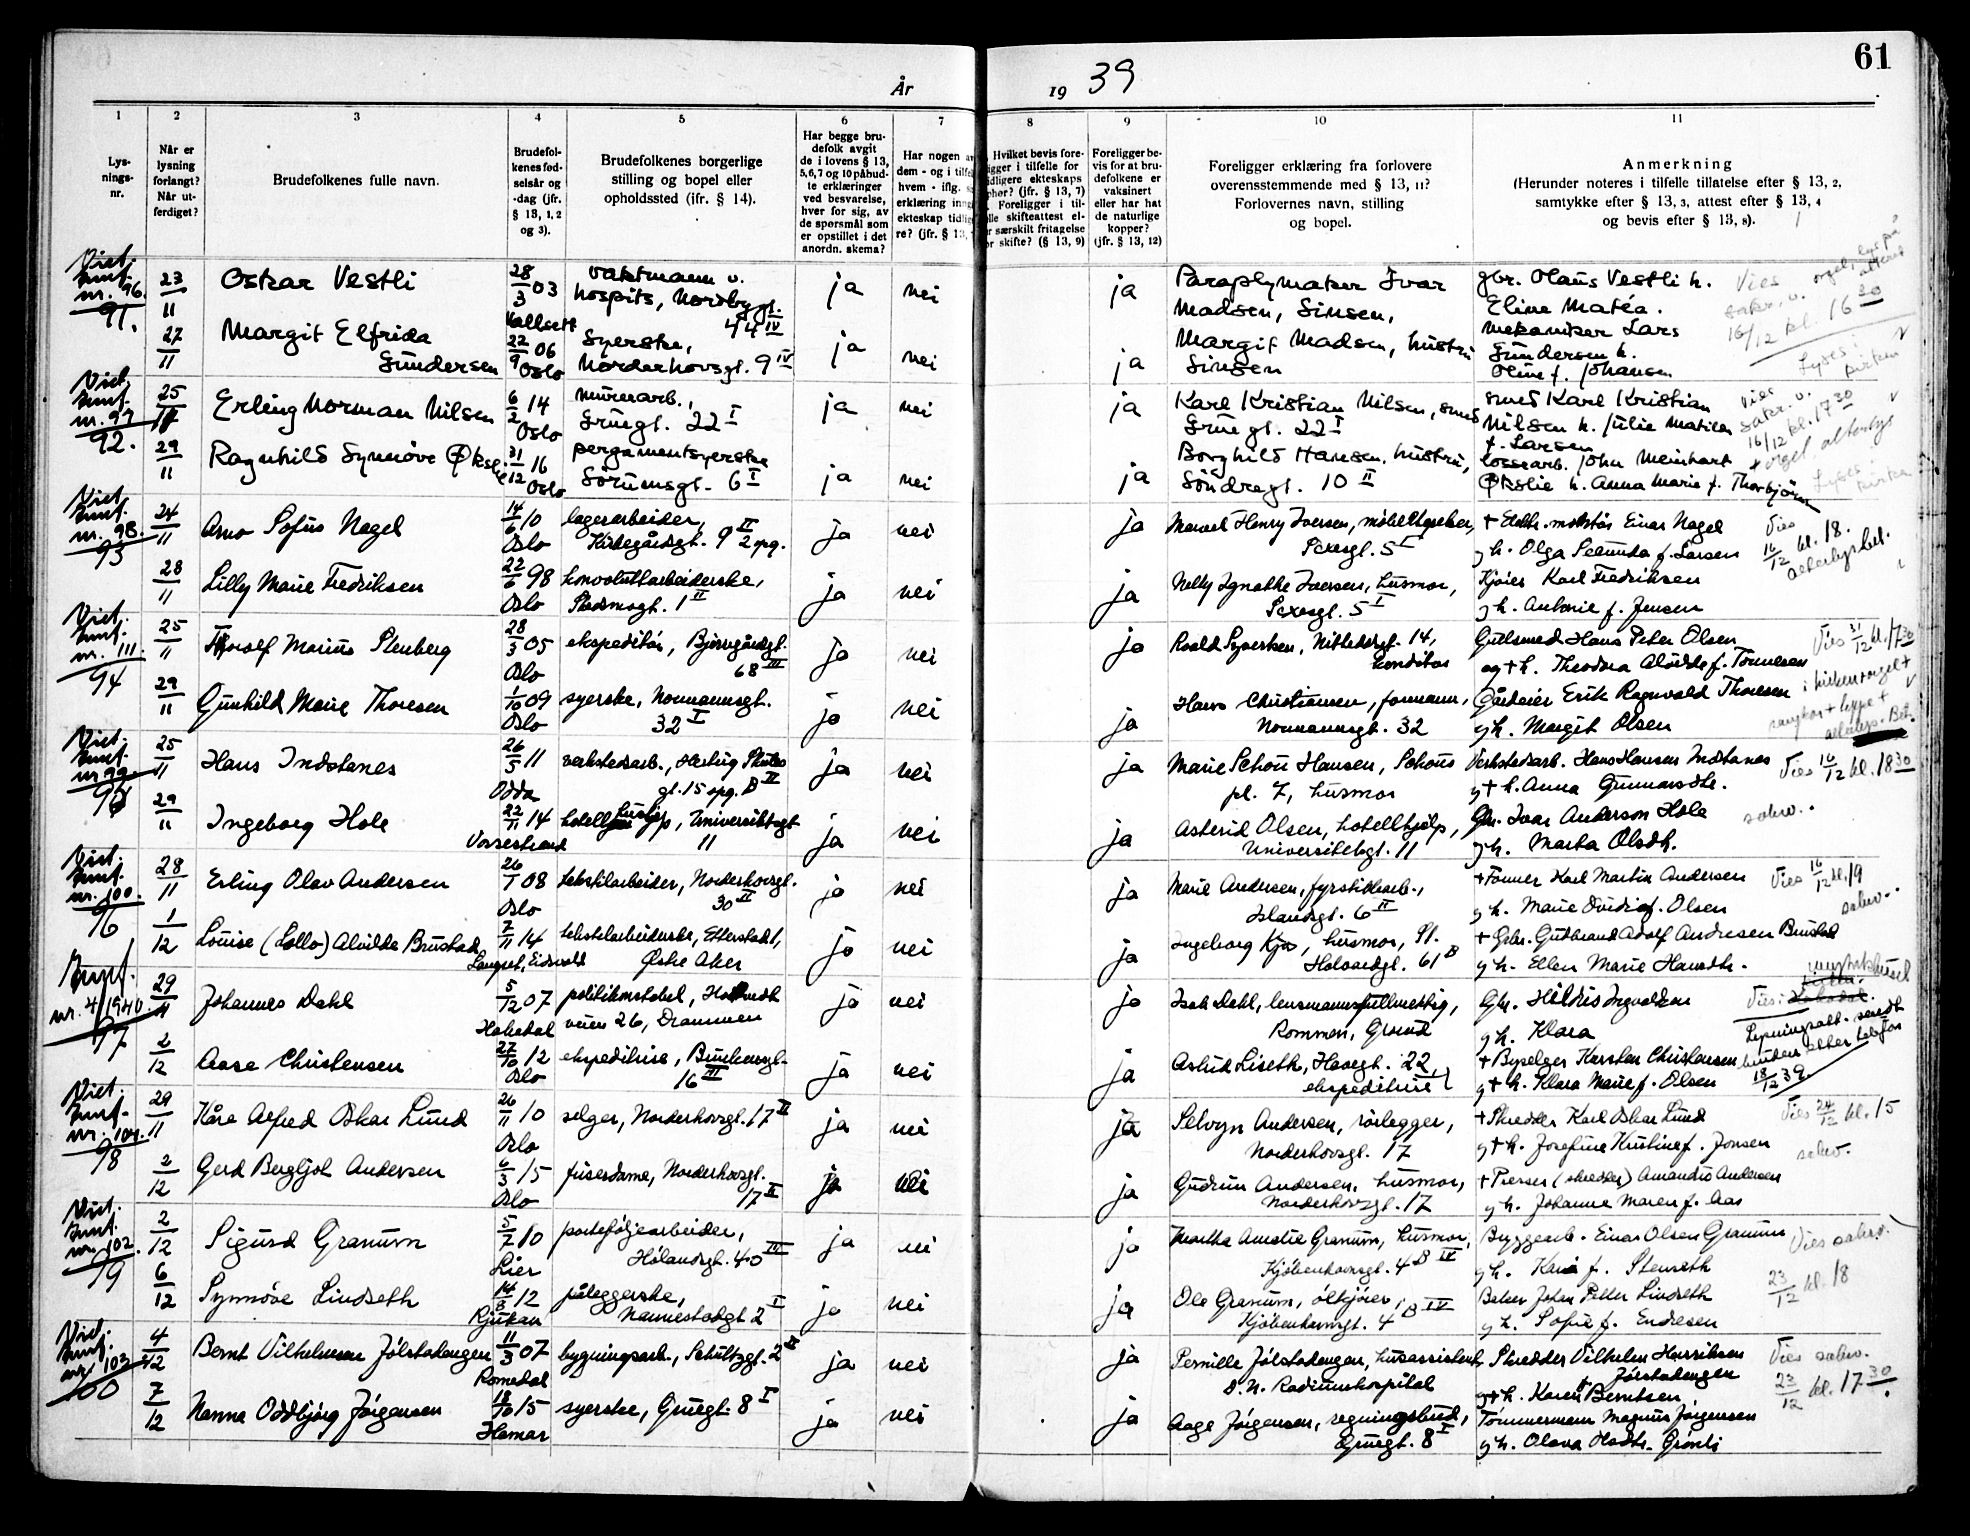 61
År
19 39
1 2 3 4 5 6 7 8 9 10 11
Lys-
nings-
nr.
Når er
lysning
forlangt?
Når ut-
ferdiget?
Brudefolkenes fulle navn.
Brudefol-
kenes fød-
selsår og
-dag (jfr.
§ 13, 1, 2
og 3).
Brudefolkenes borgerlige
stilling og bopel eller
opholdssted (jfr. § 14).
Har begge bru-
defolk avgit
de i lovens § 13,
5,6,7 og 10 påbud-
te erklæringer
ved besvarelse,
hver for sig, av
de spørsmål som
er opstillet i det
anordn. skema?
Har nogen
dem - og i
hvem - iflg.
erklæring
ekteskap
re? (jfr. § 13,
Hvilket bevis fore-
ligger i tilfelle for
tidligere ekteskaps
ophør? (jfr. § 13, 7)
Foreligger i til-
skifteattest el-
særskilt fritagelse
skifte? (§ 13, 9)
Foreligger be-
vis for at bru-
defolkene er
vaksinert
eller har hat
de naturlige
kopper?
(jfr. § 13, 12)
Foreligger erklæring fra forlovere
overensstemmende med § 13, 11?
Forlovernes navn, stilling
og bopel.
Anmerkning
(Herunder noteres i tilfelle tillatelse efter § 13, 2,
samtykke efter § 13, 3, attest efter § 13, 4
og bevis efter § 13, 8).
Viet.
nr. 96.
91.
23/11 Oskar Vestli 28/3 03 vaktmann v. ja nei ja Paraplymaker Ivar gbr. Olaus Vestli h. Vies
hospits, Nordbygt. Madsen, Sinsen, Eline Matéa. 16/12 kl. 16 30
44 IV
27/11 Margit Elfrida 22/9 06 Syerske, ja nei ja Margit Madsen, hustru mekaniker Lars
Gundersen Oslo Norderhovsgt. 9 IV Sinsen Gundersen h.
Oline f. Johansen
Lyses i kirken
Viet.
nr. 97
92.
25/11 Erling Norman Nilsen 6/2 14 murerarb., ja nei ja Karl Kristian Nilsen, smed smed Karl Kristian Vies
Oslo Gruegt. 22 I Gruegt. 22 I Nilsen h. Julie Matilde 16/12 kl. 17 30
f. Larsen
29/11 Ragnhild Synnöve Økslie 31/12 16 pergamentsyerske ja nei ja Borghild Hansen, hustru, lossearb. John Meinhart
Oslo Sörumsgt. 6 I Söndregt. 10 II Økslie h. Anna Marie f. Thorbjörnsen
Viet.
nr. 98.
93
24/11 Arno Sofus Nagel 14/6 10 lagerarbeider, ja nei ja Marcel Henry Iversen, † Einar Nagel Vies
Oslo Kirkegårdsgt. 9 II 2 opg. Sexesgt. 5 I g h. Olga Secunda f. Larsen 16/12 kl. 18.
28/11 Lilly Marie Fredriksen 22/6 98 konvoluttarbeiderske, ja nei ja Nelly Ignathe Iversen, husmor, Kjører Karl Fredriksen
Oslo 1 II Sexesgt. 5 I g h. Antonie f. Jensen
Viet.
nr. 111.
94
25/11 Thoralf Marius Stenberg 28/3 05 ekspeditör, Bjerregårdsgt. ja nei ja Roald Syvertsen, 14, Gullsmed Hans Peter Olsen Vies 31/12 kl. 17 30
Oslo 68 III konditor og † h. Theodora Alvilde f. Tönnesen
29/11 Gunhild Marie Thoresen 1/10 09 syerske, Normannsgt. ja nei ja Hans Christiansen, formann, Gårdeier Erik Ragnvald Thoresen
Oslo 32 I Normannsgt. 32 g h. Margit Olsen
Viet.
nr. 99.
95
25/11 Hans Indstanes 26/5 11 verkstedsarb., Herslep ja nei ja Marie Schou Hansen, Schous Verkstedsarb. Hans Hansen Indtanes Vies 16/12 kl. 18 30
Odda gt. 15 opg. B II pl. 7, husmor g † h. Anna Gunnarsdtr.
29/11 Ingeborg Hole 22/11 14 Universitetsgt ja nei ja Asterid Olsen, hotellhjelp, Gbr. Ivar Anderson Hole
Vossestrand 11 Universitetsgt. 11 g h. Marta Olsdtr.
Viet.
nr. 100.
96
28/11 Erling Olav Andersen 26/1 08 tekstilarbeider, Norderhovsgt. ja nei ja Marie Andersen, fyrstikkarb., † Former Karl Martin Andersen Vies 16/12 kl. 19
Oslo 30 II Islandsgt. 6 II g h. Marie f. Olsen
1/12 Louise (Lollo) Alvilde Brustad 7/11 14 tekstilarbeiderske, Etterstad, ja nei ja Ingeborg Kjos, husmor, St. † Gbr. Gudbrand Adolf Andresen Brustad
Langset, Eidsvold Østre Aker Halvardsgt. 61 B g h. Ellen Marie Hansdtr.
nr. 4/1940.
97
29/11 Johannes Dahl 5/12 07 politikonstabel, ja nei ja Isak Dahl, lensmannsfullmektig, Gbr. Hildris Ingvaldsen
Hobedal veien 26, Drammen Rommen, Grorud g h. Klara
2/12 Aase Christensen 27/10 12 ekspeditrise, ja nei ja Astrid Liseth, Hasegt. 22, † Byselger Karsten Christensen
Oslo 16 III ekspeditrise g † h. Klara Marie f. Olsen 18/12 39.
Viet.
nr. 104.
98
29/11 Kåre Alfred Oskar Lund 26/11 10 selger, Norderhovsgt. 17 II ja nei ja Selvyn Andersen, rörlegger, † Skredder Karl Oskar Lund Vies 24/12 kl. 15
Oslo Norderhovsgt. 17 g † h. Josefine f. Jonsen
2/12 Gerd Bergljot Andersen 6/3 15 frisördame, Norderhovsgt. ja nei ja Gudrun Andersen, husmor, † Presser (skredder) Amandus Andersen
Oslo 17 II Norderhovsgt. 17 g h. Johanne Maren f. Aas
Viet.
nr. 102.
99
2/12 Sigurd Granum 5/7 10 porteföljearbeider, ja nei ja Martha Amalie Granum, husmor, Byggearb. Einar Olsen Granum Vies
Lier Hölandsgt. 40 IV Kjöbenhavnsgt. 4 B IV g h. Kaia f. Stenseth 23/12 kl. 18
6/12 Synnöve Lindseth 14/8 12 påleggerske, ja nei ja Ole Granum, ölkjörer, Baker Johan Petter Lindseth
Rjukan Nannestadgt 2 I Kjöbenhavnsgt. 4 B IV g h. Sofie f. Endresen
Viet.
nr. 103
100
4/12 Bernt Vilhelmsen Jölstadengen 11/3 07 bygningsarb., Schultzgt. 2 ja nei ja Pernille Jölstadengen, husassistent, Skredder Vilhelm Henriksen Vies
Romedal D. N. Radiumhospital Jölstadengen 23/12 kl. 17 30
g † h. Karen Berntsen
7/12 Nanna Oddbjörg Jörgensen 18/10 15 syerske, Gruegt. 8 I ja nei ja Aage Jörgensen, regningsbud, Tömmermann Magnus Jörgensen
Hamar Gruegt. 8 I g h. Olava